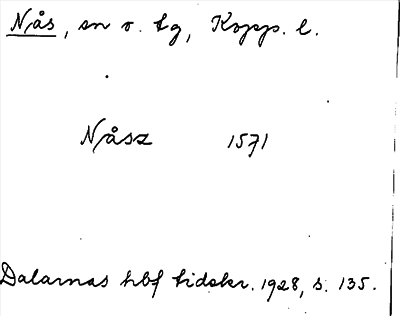 Nås, sn o. tg, Kopp. l.
Nåsz 1571
Dalarnas hbf tidskr. 1928, s. 135.